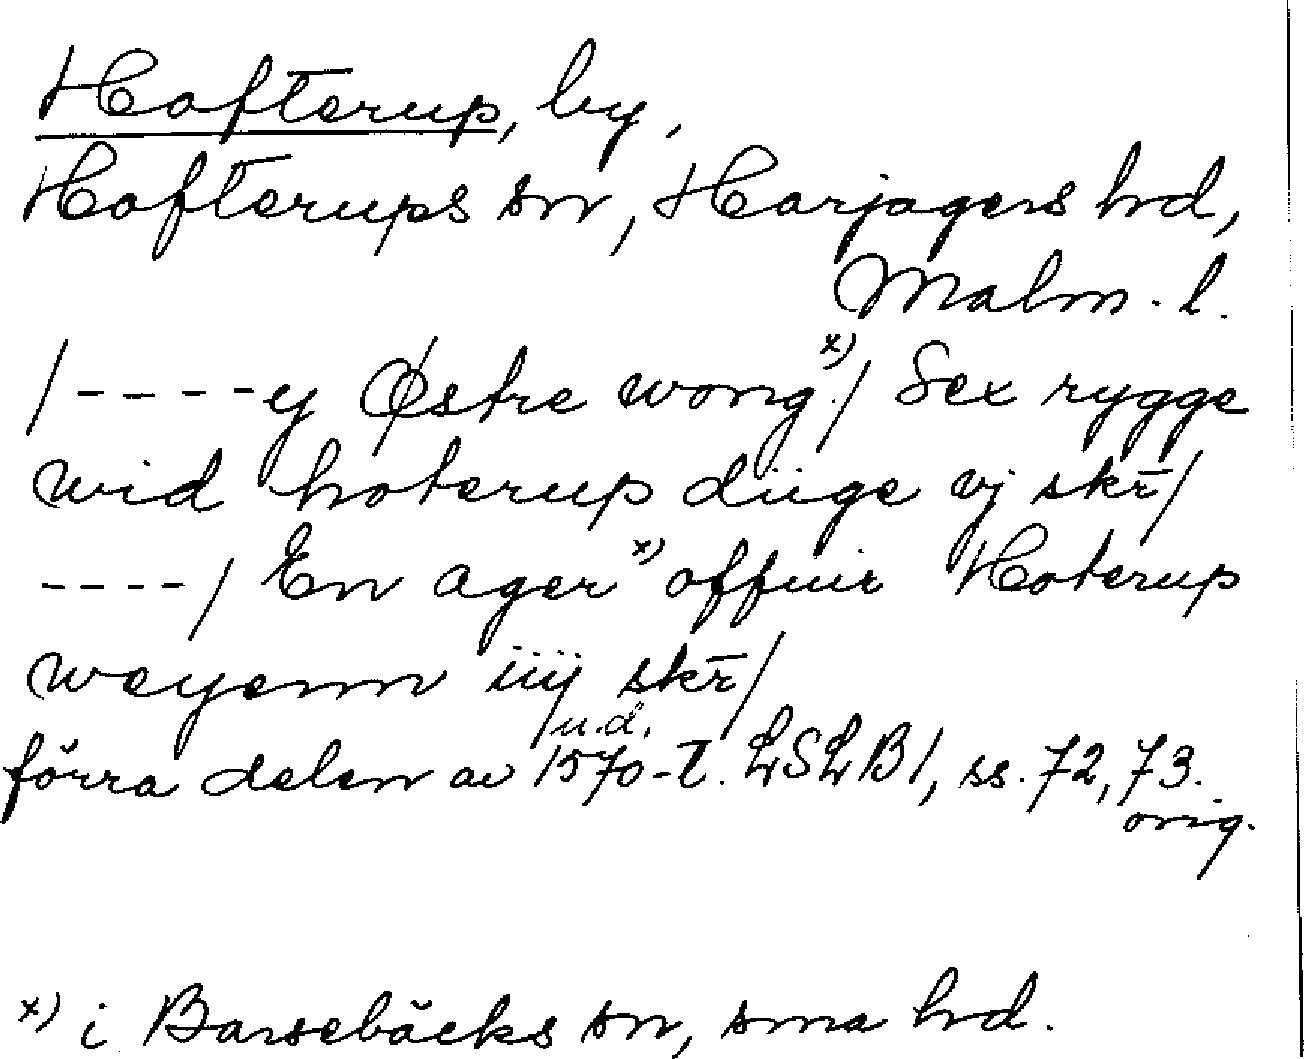 Hofterup, by,
Hofterups sn, Harjagers hd,
Malm. l.
/----ij Østre wong x)/ Sex rygge
wid hoterup diige vj skr̄/
----/ En ager x) offuir Hoterup
weyenn iiij skr̄/
u.d.
förra delen av 1570-t. LSLB1, ss. 72, 73.
orig.
x) i Barsebäcks sn, sma hd.